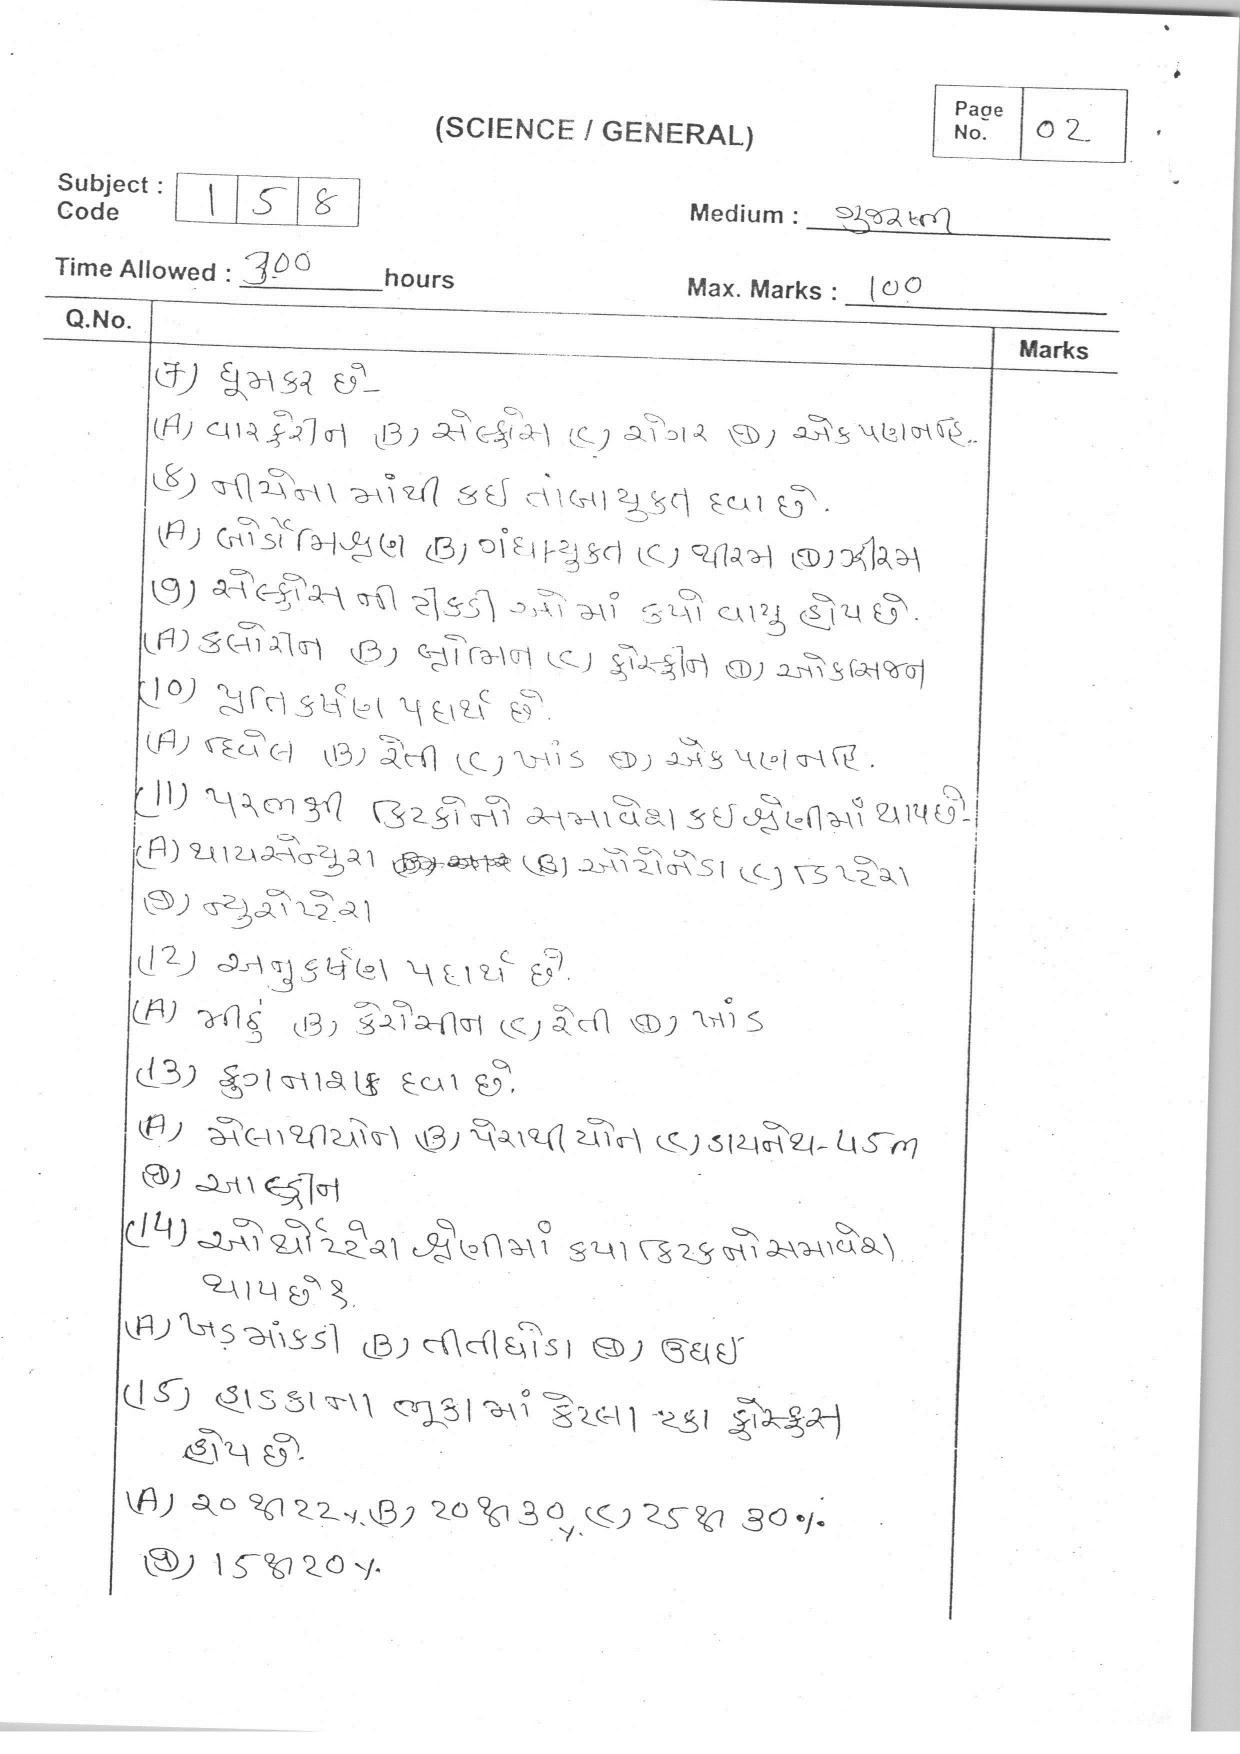 (SCIENCE / GENERAL)
Page No. 02
Subject : Code 1 5 8
Medium : ગુજરાતી
Time Allowed : 3.00 hours
Max. Marks : 100
Q.No.
Marks
(7) ધૂમકર છે-
(A) વારફેરીન (B) સેલ્ફોસ (C) રોગર (D) એકપણ નહિ..
(8) નીચેના માંથી કઇ તાંબાયુકત દવા છે.
(A) બોર્ડોમિશ્રણ (B) ગંધકયુકત (C) થીરમ (D) ઝીરમ
(9) સેલ્ફોસ ની ટીકડી ઓ માં કયો વાયુ હોય છે.
(A) કલોરીન (B) બ્રોમિન (C) ફોસ્ફીન (D) ઓકસિજન
(10) પ્રતિકર્ષણ પદાર્થ છે.
(A) દિવેલ (B) રેતી (C) ખાંડ (D) એક પણ નહિ.
(11) પરભક્ષી કિટકોનો સમાવેશ કઇ શ્રેણીમાં થાય છે-
(A) થાયસેન્યુરા (B) ઓડોનેડા (C) ડિપ્ટેરા
(D) ન્યુરોપ્ટેરા
(12) અનુકર્ષણ પદાર્થ છે.
(A) મીઠું (B) કેરોસીન (C) રેતી (D) ખાંડ
(13) ફુગનાશક દવા છે.
(A) મેલાથીયોન (B) પેરાથીયોન (C) ડાયનેથ-પડળ
(D) આલ્ડ્રીન
(14) ઓર્થોપ્ટેરા શ્રેણીમાં કયા કિટકનો સમાવેશ
થાય છે ?
(A) ખડમાંકડી (B) તીતીઘોડા (D) ઉધઇ
(15) હાડકાના ભૂકામાં કેટલા ટકા ફોસ્ફરસ
હોય છે.
(A) 20 થી 22 % (B) 20 થી 30 % (C) 25 થી 30 %
(D) 15 થી 20 %